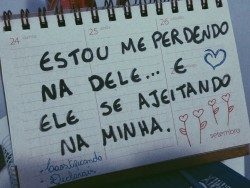 24
25
26
ESTOU ME PERDENDO
NA DELE... E
ELE SE AJEITANDO
NA MINHA.
setembro